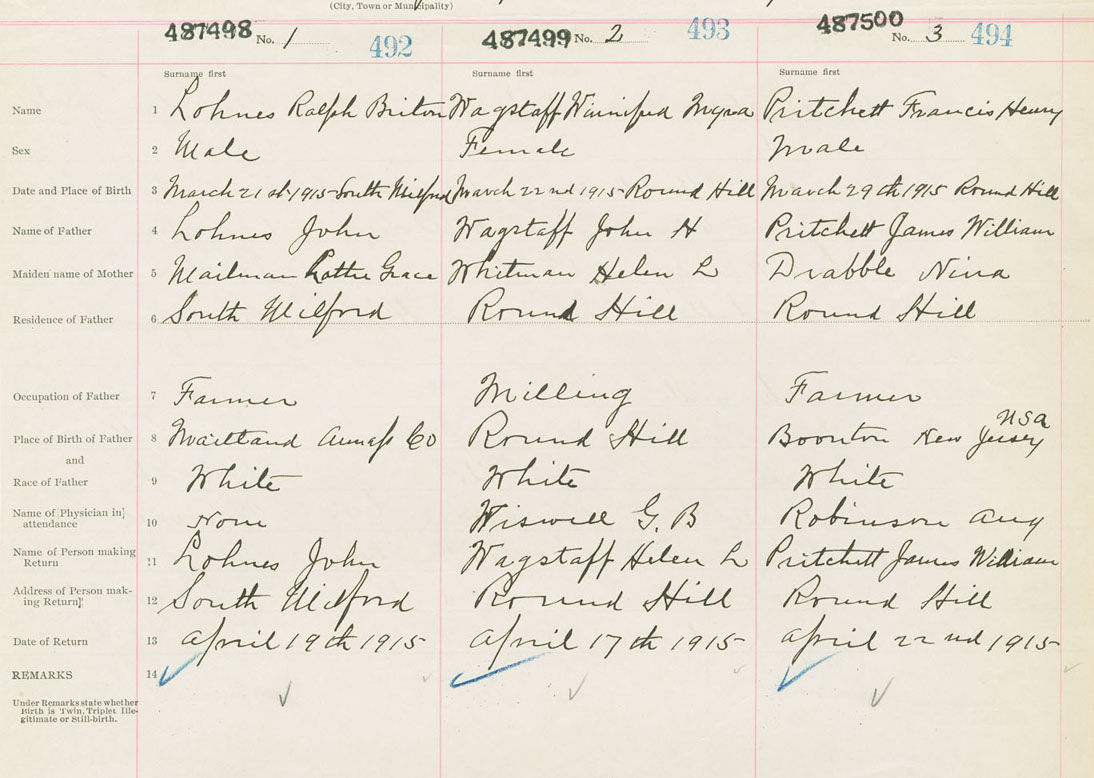 (City, Town or Municipality)
487498 No. 1 492 487499 No. 2 493 487500 No. 3 494
Surname first Surname first Surname first
Name 1 Lohnes Ralph Briton Wagstaff Winnifred Myra Pritchett Francis Henry
Sex 2 Male Female Male
Date and Place of Birth 3 March 21st 1915 South Milford March 22nd 1915 Round Hill March 29th 1915 Round Hill
Name of Father 4 Lohnes John Wagstaff John H Pritchett James William
Maiden name of Mother 5 Mailman Lottie Grace Whitman Helen L Drabble Nina
Residence of Father 6 South Milford Round Hill Round Hill
Occupation of Father 7 Farmer Milling Farmer
Place of Birth of Father 8 Maitland Annap Co Round Hill Boonton New Jersey USA
and
Race of Father 9 White White White
Name of Physician in
attendance 10 None Wiswell G. B Robinson
Name of Person making
Return 11 Lohnes John Wagstaff Helen L Pritchett James William
Address of Person mak-
ing Return 12 South Milford Round Hill Round Hill
Date of Return 13 April 19th 1915 April 17th 1915 April 22nd 1915
REMARKS 14
Under Remarks state whether
Birth is Twin, Triplet Ille-
gitimate or Still-birth.